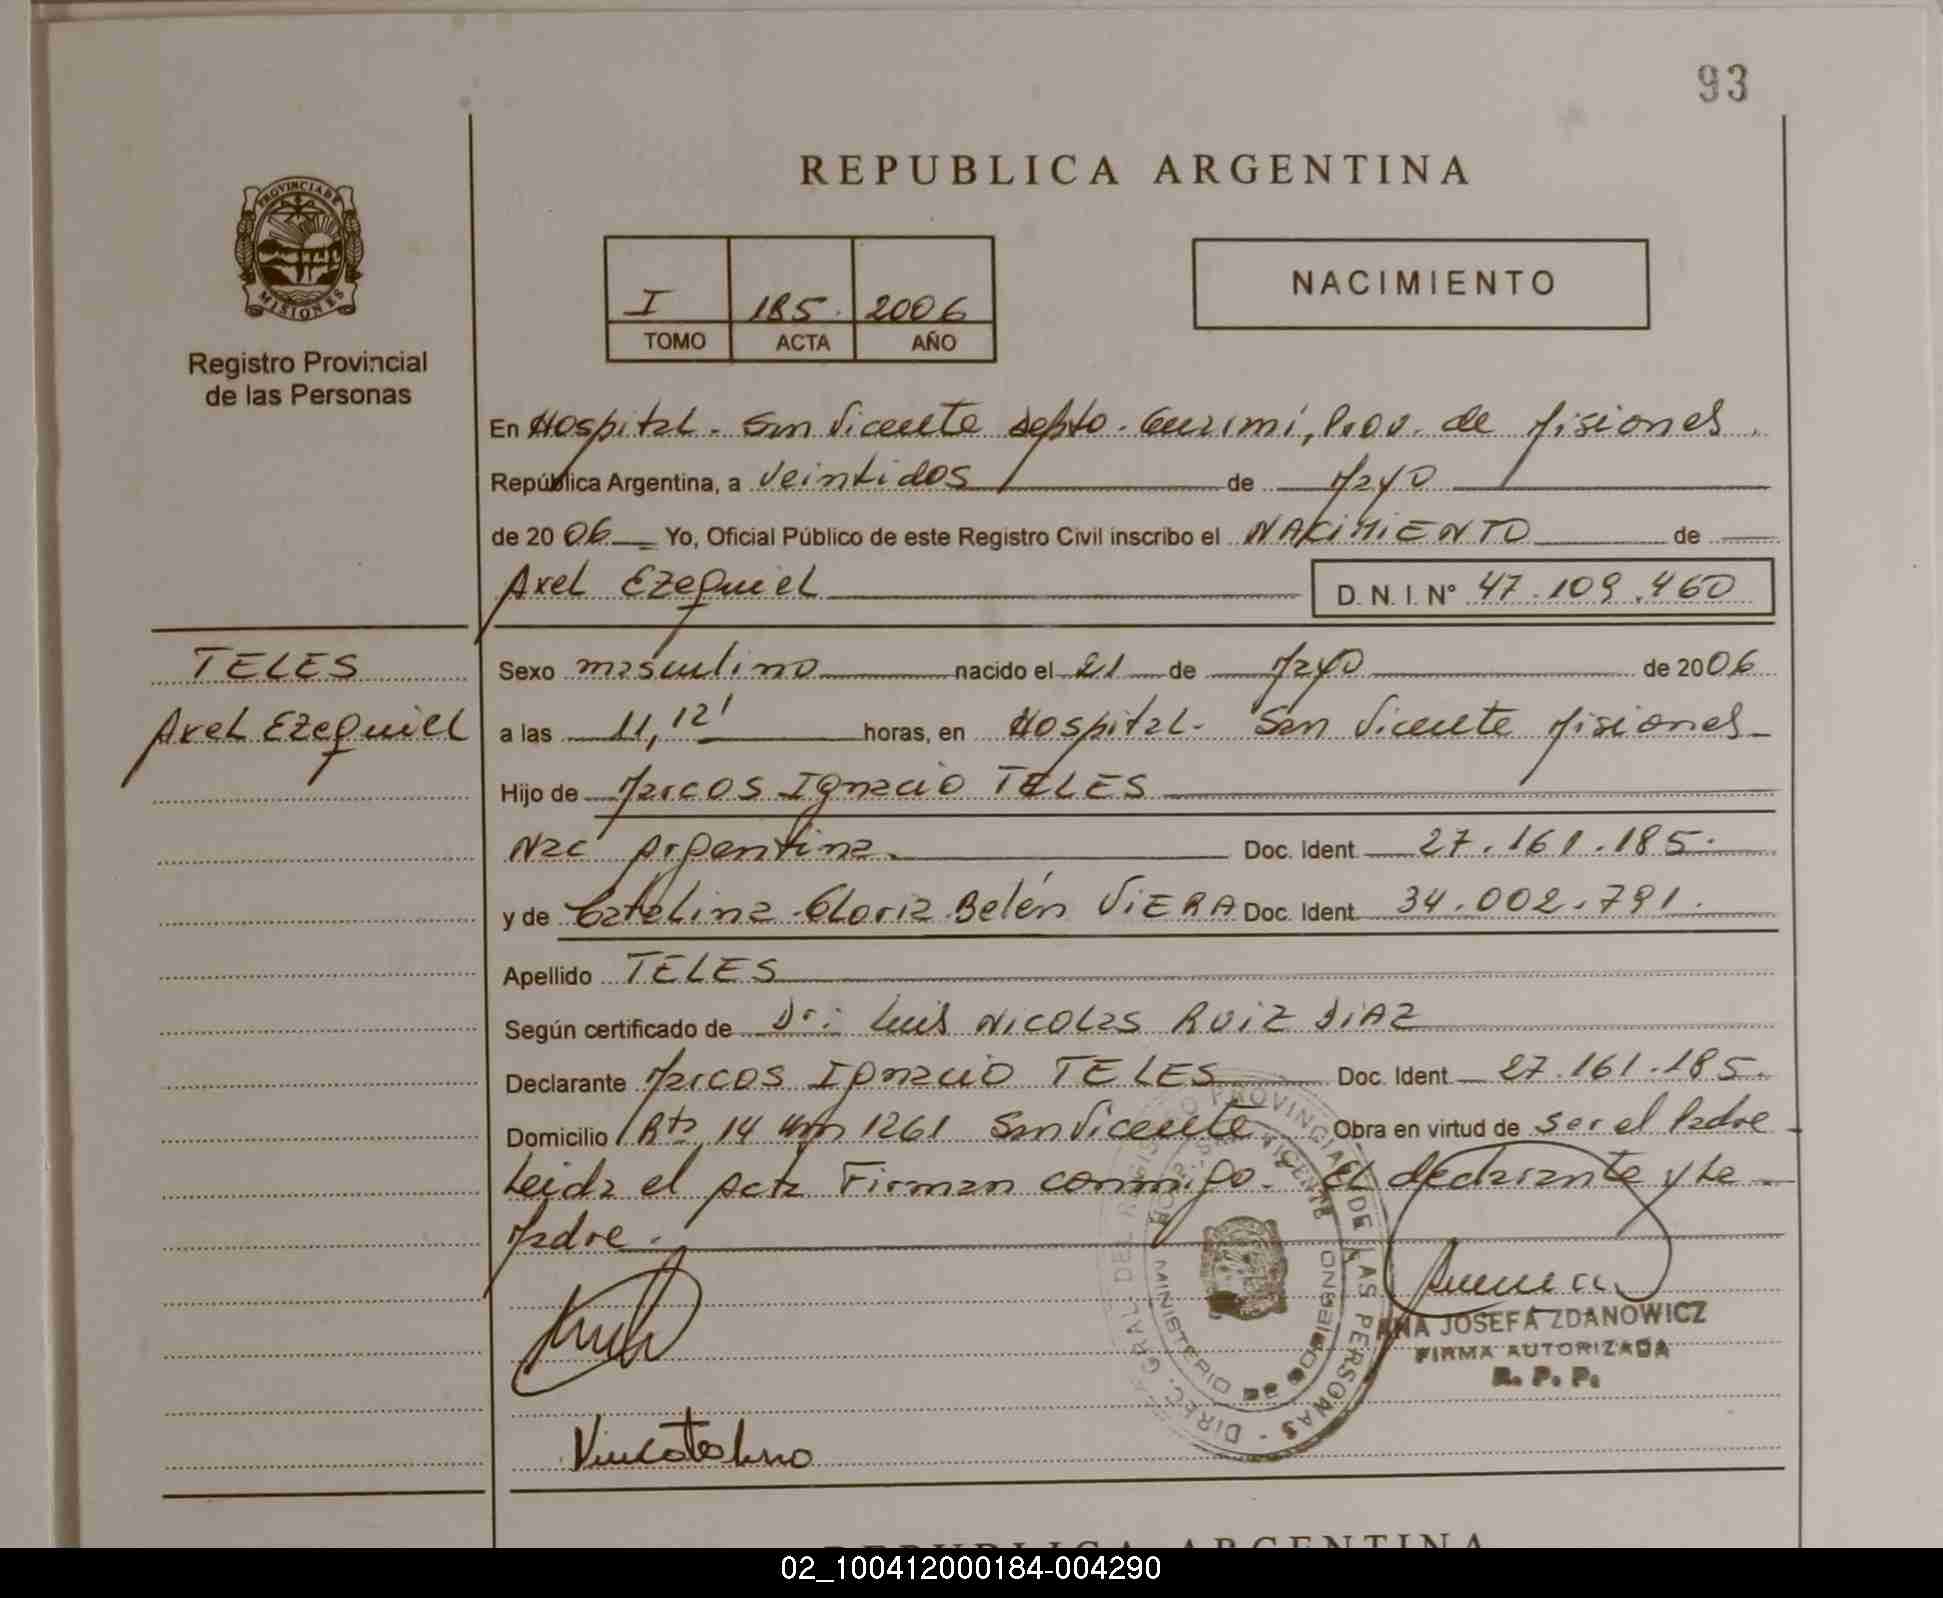 93
REPUBLICA ARGENTINA
PROVINCIA DE
MISIONES
Registro Provincial
de las Personas
I 185 2006
TOMO ACTA AÑO
NACIMIENTO
En Hospital - San Vicente Depto. Guaraní, Prov. de Misiones
República Argentina, a Veintidos de Mayo
de 2006 Yo, Oficial Público de este Registro Civil inscribo el NACIMIENTO de
Axel Ezequiel D.N.I. N° 47.109.460
TELES
Axel Ezequiel
Sexo masculino nacido el 21 de Mayo de 2006
a las 11,12' horas, en Hospital - San Vicente Misiones
Hijo de Marcos Ignacio TELES
Nac Argentina. Doc. Ident 27.161.185.
y de Catalina Gloria Belén ViERA Doc. Ident. 34.002.791.
Apellido TELES
Según certificado de Dr: Luis Nicolas RUIZ DIAZ
Declarante Marcos Ignacio TELES Doc. Ident. 27.161.185.
Domicilio Rta 14 Km 1261 San Vicente Obra en virtud de ser el Padre
Leida el Acta Firman conmigo. El declarante y La
Madre.
DIREC. GRAL. DEL REGISTRO PROVINCIAL DE LAS PERSONAS
MINISTERIO DE GOBIERNO
ANA JOSEFA ZDANOWICZ
FIRMA AUTORIZADA
R. P. P.
REPUBLICA ARGENTINA
02_100412000184-004290